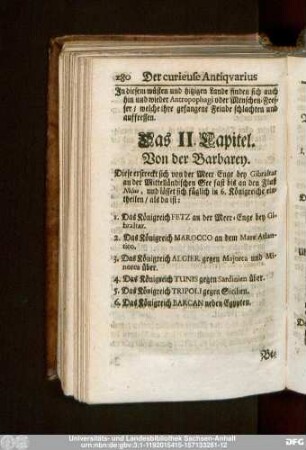 280 Der curieuse Antiqvarius
In diesem wüsten und hitzigen Lande finden sich auch
hin und wieder Antropophagi oder Menschen-Fres-
ser / welche ihre gefangene Feinde schlachten und
auffressen.
Das II. Capitel.
Von der Barbarey.
Diese erstreckt sich von der Meer Enge bey Gibraltar
an der Mittelländischen See fast bis an den Fluß
Nilus, und lässet sich füglich in 6. Königreiche ein-
theilen / als da ist:
1. Das Königreich FETZ an der Meer-Enge bey Gi-
braltar.
2. Das Königreich MAROCCO an dem Mare Atlan-
tico.
3. Das Königreich ALGIER gegen Majorca und Mi-
norca über.
4. Das Königreich TUNIS gegen Sardinien über.
5. Das Königreich TRIPOLI gegen Sicilien.
6. Das Königreich BARCAN neben Egypten.
Universitäts- und Landesbibliothek Sachsen-Anhalt
urn:nbn:de:gbv:3:1-1192015415-167133261-12
DFG